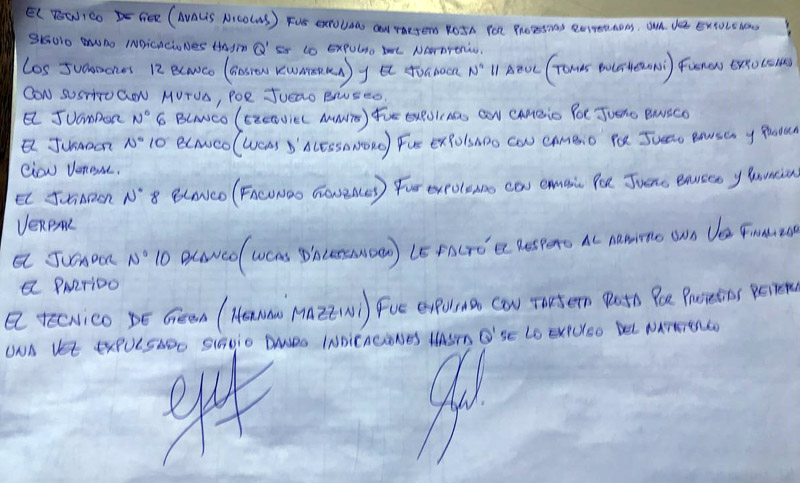 EL TECNICO DE GER (AVALIS NICOLAS) FUE EXPULSADO CON TARJETA ROJA POR PROTESTAS REITERADAS. UNA VEZ EXPULSADO
SIGUIO DANDO INDICACIONES HASTA Q' SE LO EXPULSO DEL NATATORIO.
LOS JUGADORES 12 BLANCO (GASTON KWATERKA) Y EL JUGADOR N° 11 AZUL (TOMAS BULGHERONI) FUERON EXPULSADO
CON SUSTITUCION MUTUA, POR JUEGO BRUSCO.
EL JUGADOR N° 6 BLANCO (EZEQUIEL AMANTE) FUE EXPULSADO CON CAMBIO POR JUEGO BRUSCO
EL JUGADOR N° 10 BLANCO (LUCAS D'ALESSANDRO) FUE EXPULSADO CON CAMBIO POR JUEGO BRUSCO Y PROVOCA
CION VERBAL.
EL JUGADOR N° 8 BLANCO (FACUNDO GONZALES) FUE EXPULSADO CON CAMBIO POR JUEGO BRUSCO Y
VERBAL
EL JUGADOR N° 10 BLANCO (LUCAS D'ALESSANDRO) LE FALTÓ EL RESPETO AL ARBITRO UNA VEZ FINALIZAD
EL PARTIDO
EL TECNICO DE GEBA (HERNAN MAZZINI) FUE EXPULSADO CON TARJETA ROJA POR PROTESTAS REITERA
UNA VEZ EXPULSADO SIGUIO DANDO INDICACIONES HASTA Q' SE LO EXPULSO DEL NATATORIO